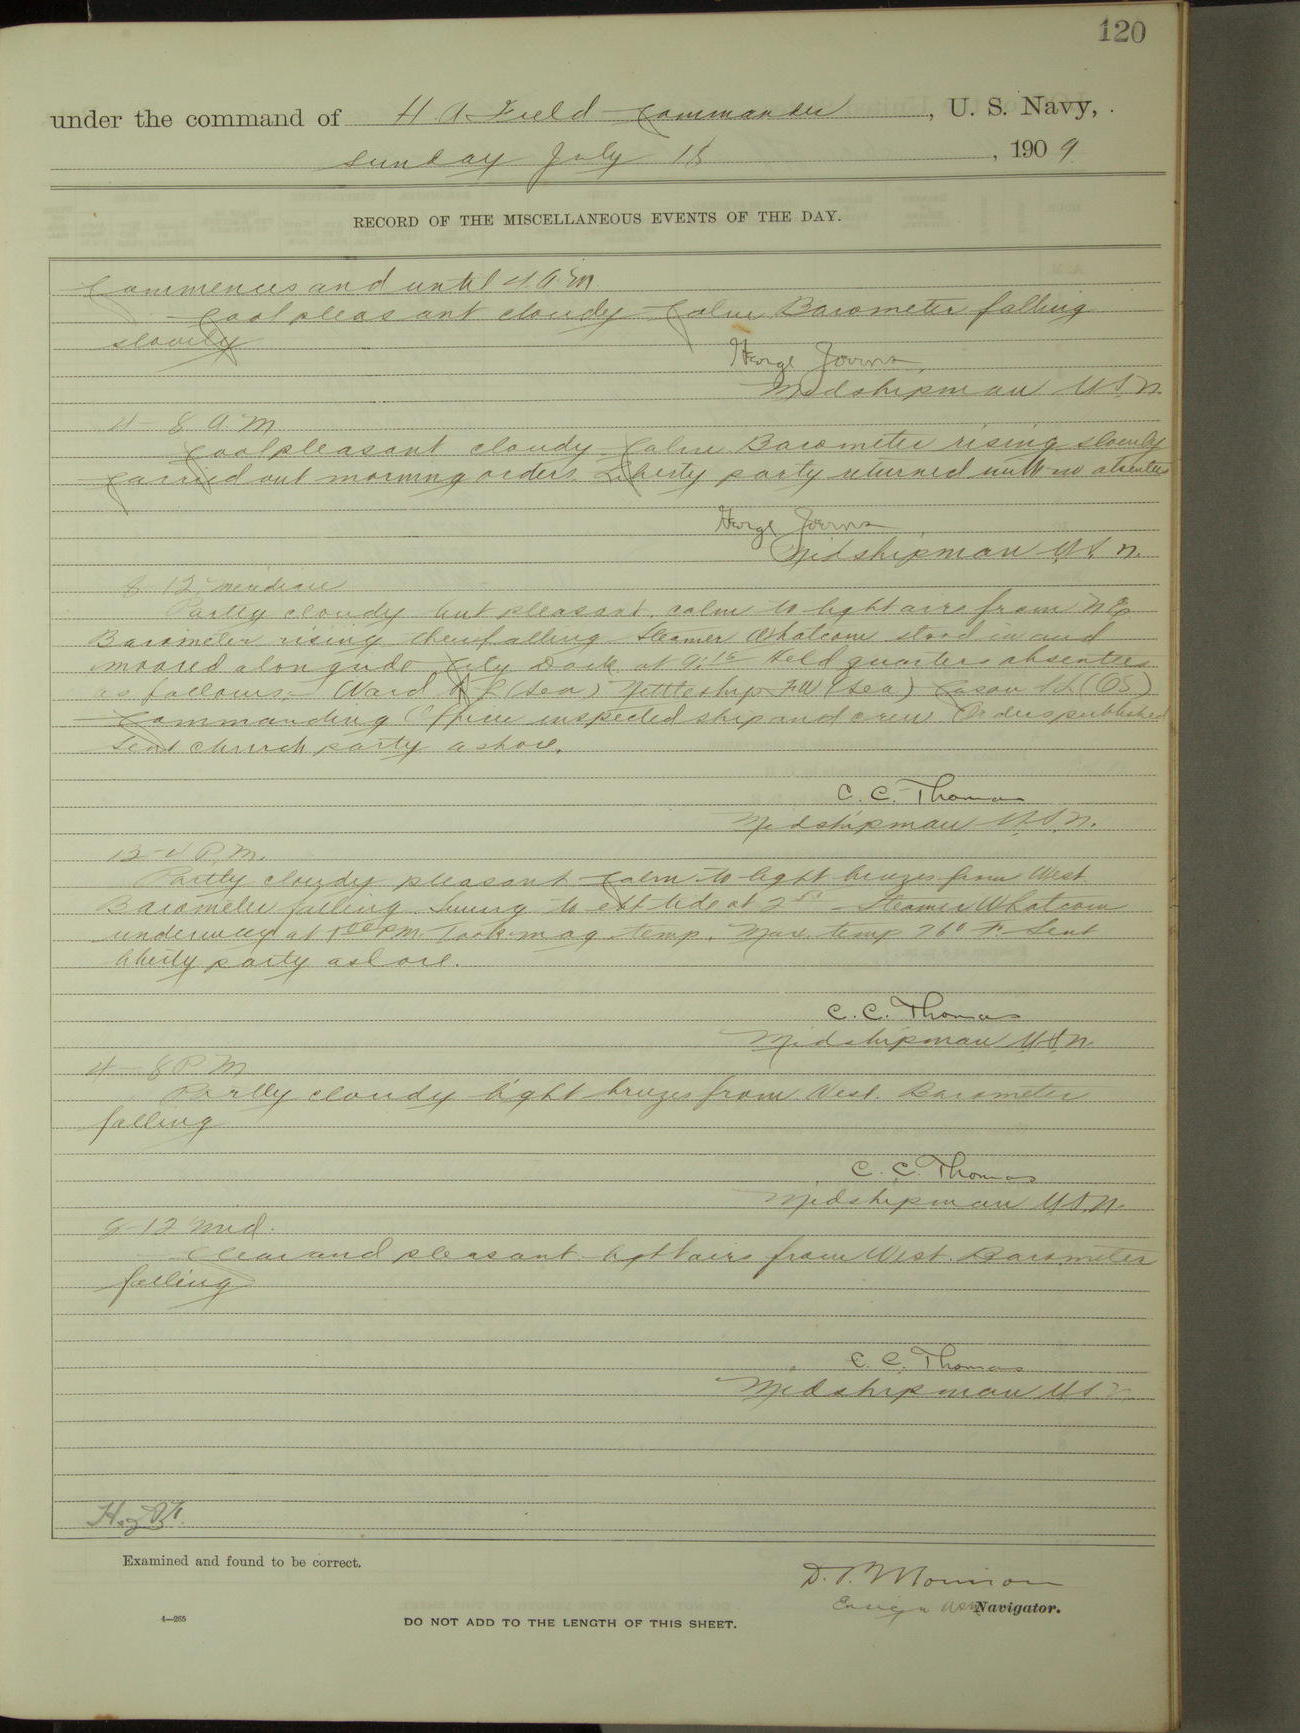 120
under the command of H A Field Commander, U. S. Navy,
Sunday July 18, 1909
RECORD OF THE MISCELLANEOUS EVENTS OF THE DAY.
Commences and until 4 A.M
Cool pleasant cloudy Calm Barometer falling
slowly
George
Midshipman U.S.N.
4-8 A.M
Cool pleasant cloudy Calm Barometer rising slowly
Carried out morning orders. Liberty party returned with no absentees
George
Midshipman U.S.N.
8-12 meridian
Partly cloudy but pleasant, calm to light airs from
Barometer rising then falling. Steamer Whatcom stood in and
moored alongside City Dock at 9.15 Held quarters absentees
as follows:- Ward (Sea) Nettleship F.W (Sea) Cason (OS)
Commanding Officer inspected ship and crew. Orders published
Sent church party ashore.
C. C. Thomas
Midshipman U.S.N.
12-4 P.M.
Partly cloudy pleasant calm to light breezes from West
Barometer falling. Swung to ebb tide at Steamer Whatcom
underway at 1 00 P.M. Took mag. temp. Max. temp 76° F. Sent
liberty party ashore.
C. C. Thomas
Midshipman U.S.N.
4-8 P.M
Partly cloudy light breezes from West. Barometer
falling
C. C. Thomas
Midshipman U.S.N.
8-12 Mid.
Clear and pleasant light airs from West. Barometer
falling
C. C. Thomas
Midshipman U.S.N.
Examined and found to be correct.
Ensign USN Navigator.
4—265
DO NOT ADD TO THE LENGTH OF THIS SHEET.